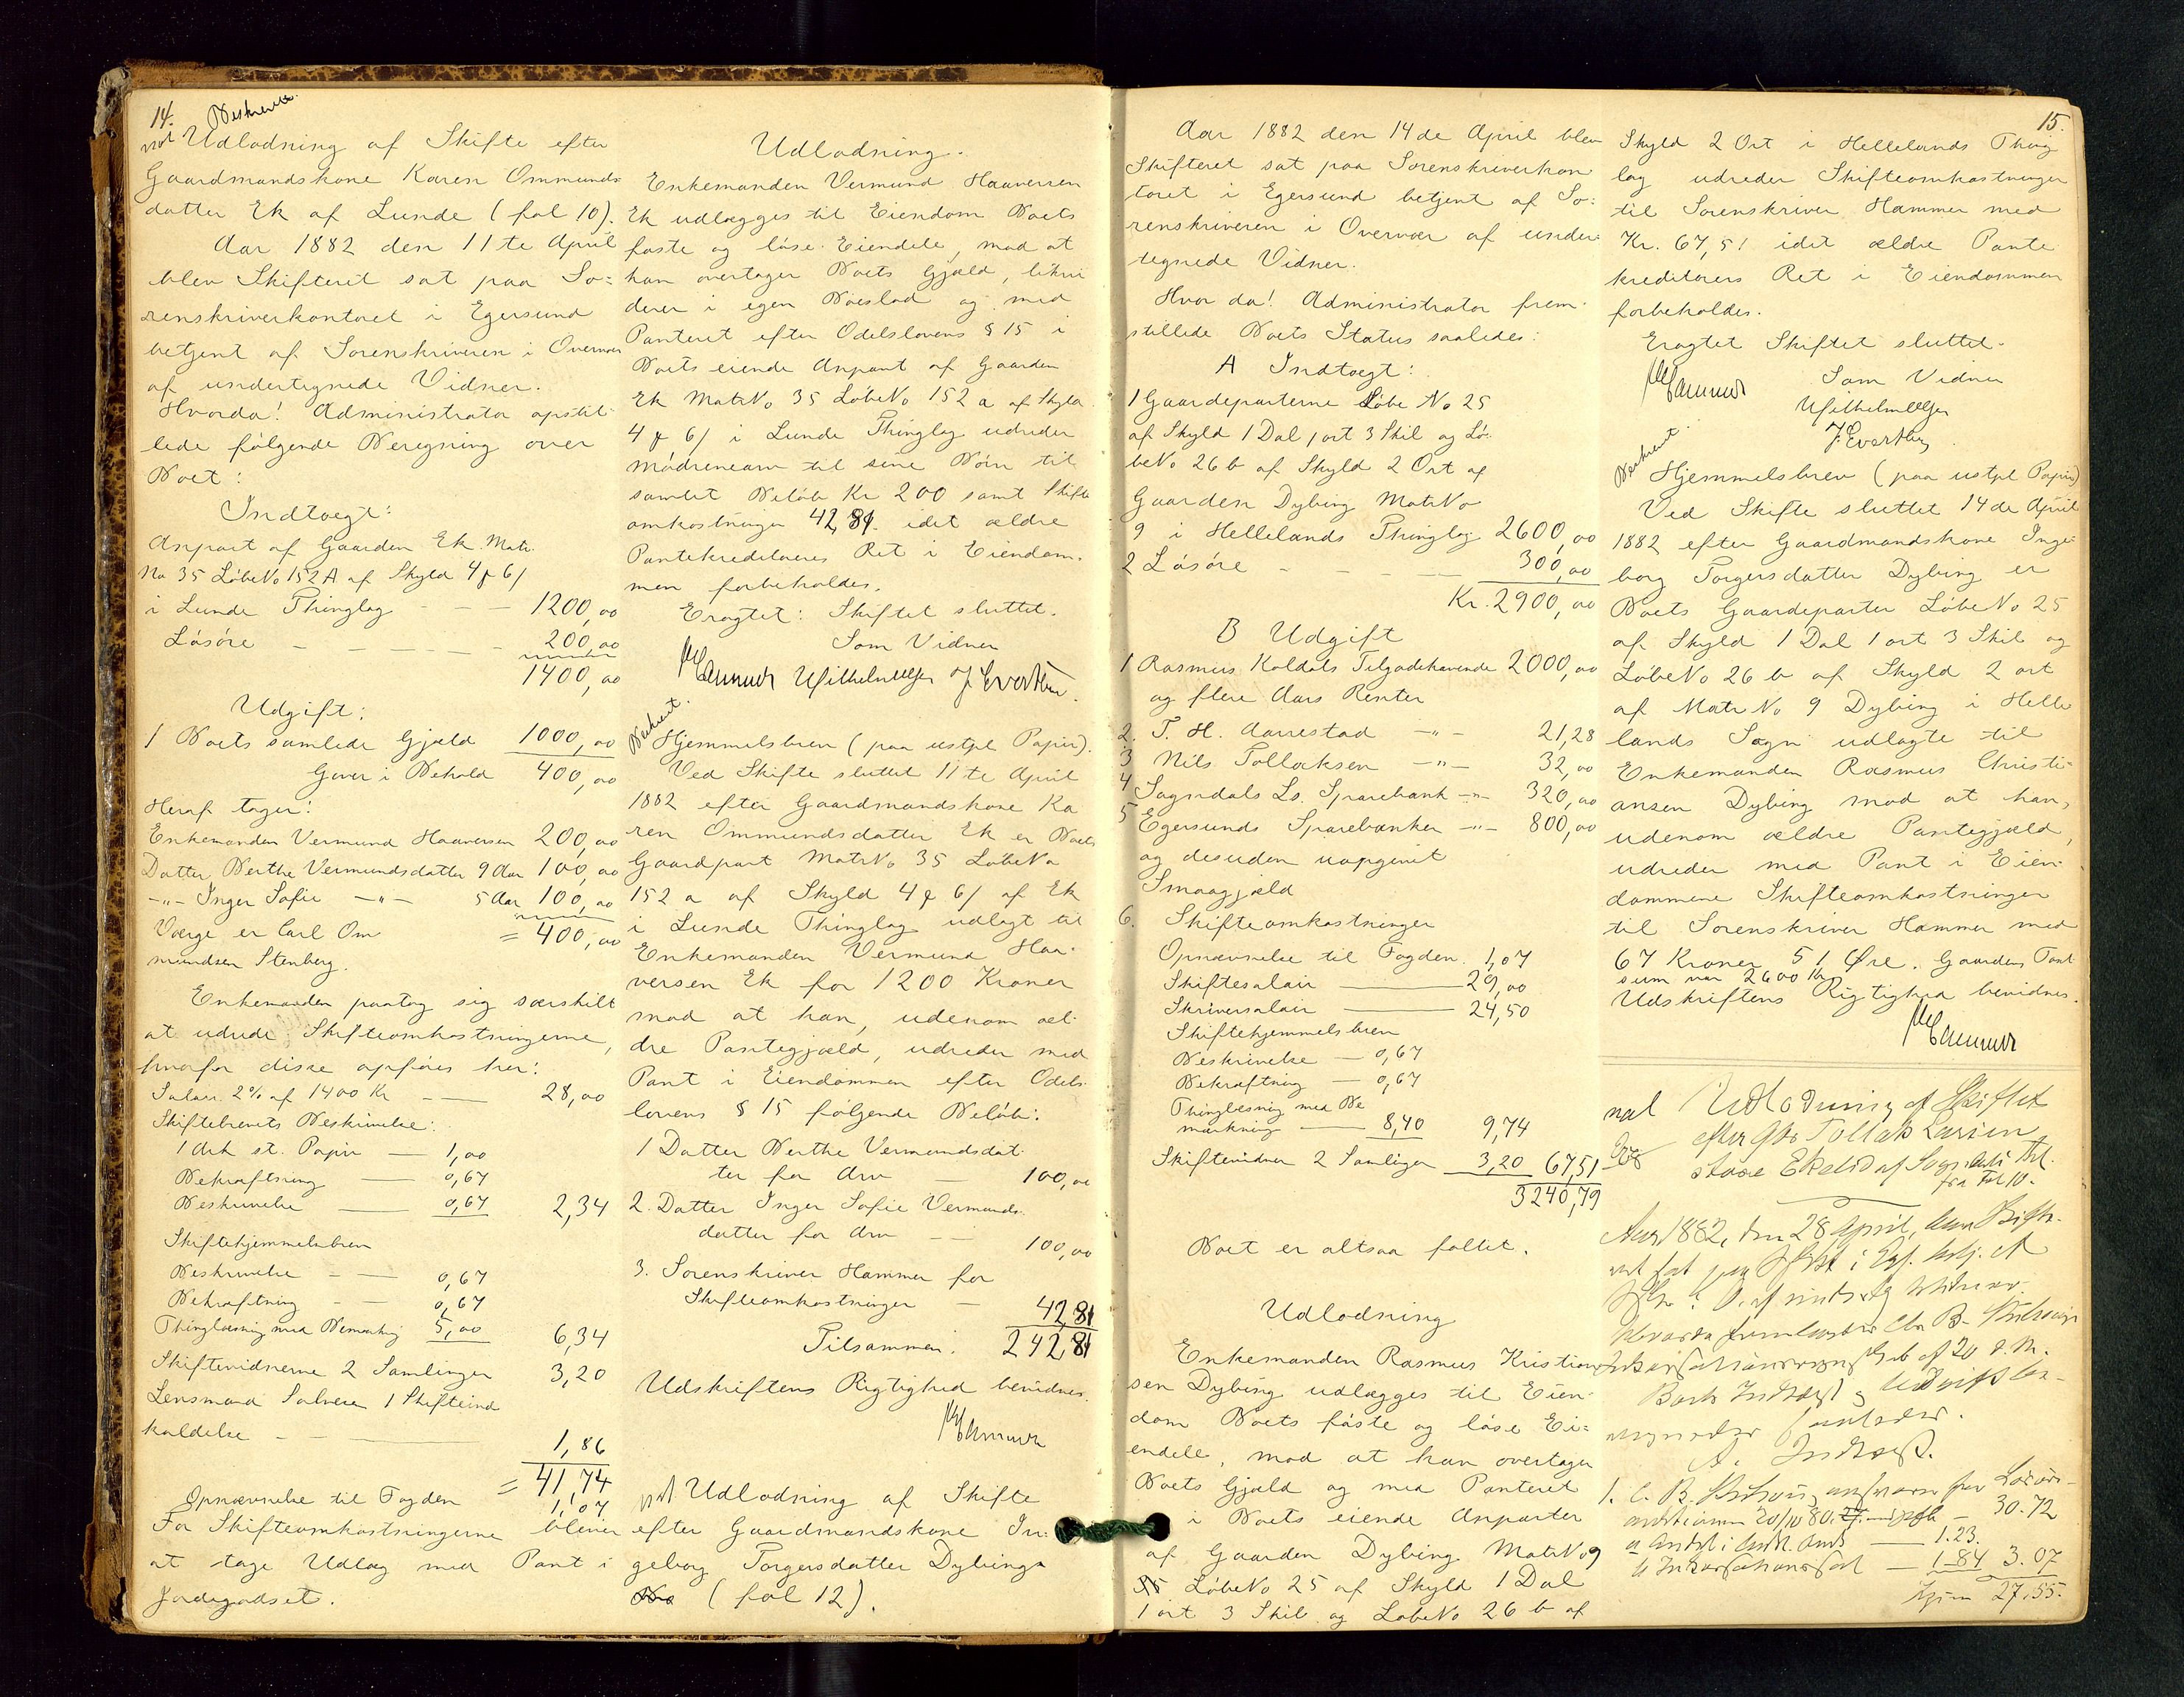 14.
Beskreven
not Udlodning af Skifte efter
Gaardmandskone Karen Ommunds
datter Ek af Lunde (fol 10).
Aar 1882 den 11te April
blev Skifteret sat paa So=
renskriverkontoret i Egersund
betjent af Sorenskriveren i Overvær
af undertegnede Vidner.
Hvorda! Administrator opstil
lede følgende Beregning over
Boet:
Indtægt:
Anpart af Gaarden Ek. Matr.
No 35 LøbeNo 152 A af Skyld 4 f 6/
i Lunde Thinglag - - - 1200,00
Løsøre - - - - - 200,00
1400,00
Udgift:
1 Boets samlede Gjæld 1000,00
Gaver i Behold 400,00
Heraf tager:
Enkemanden Vermund Haaversen 200,00
Datter Berthe Vermundsdatter 9 Aar 100,00
-"- Inger Sofie -"- 5 Aar 100,00
Værge er Carl Om = 400,00
mundsen Stenberg.
Enkemanden paatog sig særskilt
at udrede Skifteomkostningerne,
hvorfor disse opføres her:
Salær 2% af 1400 Kr - — 28,00
Skiftebrevets Beskrivelse:
1 Ark st. Papir — 1,00
Bekræftning — 0,67
Beskrivelse — 0,67 2,34
Skiftehjemmelsbrev
Beskrivelse - — 0,67
Bekræftning - — 0,67
Thinglæsning med Bemærkng 5,00 6,34
Skiftevidnerne 2 Samlinger 3,20
Lensmand Salvesen 1 Skifteind
kaldelse - - — 1,86
= 41,74
Opnævnelse til Fogden 1,07
For Skifteomkostningerne bliver
at tage Udlæg med Pant i
Jordegodset.
Udlodning.
Enkemanden Vermund Haaversen
Ek udlægges til Eiendom Boets
faste og løse Eiendele, mod at
han overtager Boets Gjæld, likvi
derer i egen Boeslod og med
Panteret efter Odelslovens § 15 i
Boets eiende Anpart af Gaarden
Ek MatrNo 35 LøbeNo 152 a af Skyld
4 f 6/ i Lunde Thinglag udreder
Mødrenearv til sine Børn til
samlet Beløb Kr 200 samt Skifte
omkostninger 42,81 idet ældre
Pantekreditorers Ret i Eiendom-
men forbeholdes.
Eragtet: Skiftet sluttet.
Som Vidner
Hammer Wilhelm Olsen J. Evertsen.
Beskrevet.
Hjemmelsbrev (paa ustpl Papir).
Ved Skifte sluttet 11te April
1882 efter Gaardmandskone Ka
ren Ommundsdatter Ek er Boets
Gaardpart MatrNo 35 LøbeNo
152 a af Skyld 4 f 6/ af Ek
i Lunde Thinglag udlagt til
Enkemanden Vermund Haa-
versen Ek for 1200 Kroner
mod at han, udenom æl-
dre Pantegjæld, udreder med
Pant i Eiendommen efter Odels-
lovens § 15 følgende Beløb:
1 Datter Berthe Vermundsdat-
ter for Arv — 100,00
2. Datter Inger Sofie Vermunds-
datter for Arv — 100,00
3. Sorenskriver Hammer for
Skifteomkostninger — 42,81
Tilsammen: 242,81
Udskriftens Rigtighed bevidnes.
Hammer
not Udlodning af Skifte
efter Gaardmandskone In:
geborg Torgersdatter Dybing
(fol 12).
15.
Aar 1882 den 14de April blev
Skifteret sat paa Sorenskriverkon
toret i Egersund betjent af So:
renskriveren i Overvær af under-
tegnede Vidner.
Hvor da! Administrator frem-
stillede Boets Status saaledes:
A Indtægt:
1 Gaardeparterne Løbe No 25
af Skyld 1 Dal 1 ort 3 Skil og Lø-
beNo 26 b af Skyld 2 Ort af
Gaarden Dybing MatrNo
9 i Hellelands Thinglag 2600,00
2 Løsøre - - - — 300,00
Kr. 2900,00
B Udgift
1 Rasmus Koldals Tilgodehavende 2000,00
og flere Aars Renter
2. T. H. Aarrestad -"- 21,28
3 Nils Tollaksen -"- 32,00
4 Sogndals Ls. Sparebank -"- 320,00
5 Egersunds Sparebanker -"- 800,00
og desuden uopgivet
Smaagjæld
6. Skifteomkostninger
Opnævnelse til Fogden. 1,07
Skiftesalair — 29,00
Skriversalair — 24,50
Skiftehjemmelsbrev
Beskrivelse — 0,67
Bekræftning — 0,67
Thinglæsning med Be
mærkning — 8,40 9,74
Skiftevidner 2 Samlinger 3,20 67,51
3240,79
Boet er altsaa fallit.
Udlodning
Enkemanden Rasmus Kristian
sen Dybing udlægges til Eien-
dom Boets faste og løse Ei=
endele, mod at han overtager
Boets Gjæld og med Panteret
i Boets eiende Anparter
af Gaarden Dybing MatrNo 9
LøbeNo 25 af Skyld 1 Dal
1 ort 3 Skil og LøbeNo 26 b af
Skyld 2 Ort i Hellelands Thing
lag udreder Skifteomkostninger
til Sorenskriver Hammer med
Kr. 67,51 idet ældre Pante
kreditorers Ret i Eiendommen
forbeholdes.
Eragtet Skiftet sluttet.
Hammer Som Vidner
Wilhelm Olsen
J. Evertsen
Beskrevet.
Hjemmelsbrev (paa ustpl Papir)
Ved Skifte sluttet 14de April
1882 efter Gaardmandskone Inge
borg Torgersdatter Dybing er
Boets Gaardeparter LøbeNo 25
af Skyld 1 Dal 1 ort 3 Skil og
LøbeNo 26 b af Skyld 2 ort
af Matr No 9 Dybing i Helle
lands Sogn udlagte til
Enkemanden Rasmus Christi-
ansen Dybing mod at han,
udenom ældre Pantegjæld,
udreder med Pant i Eien-
dommene Skifteomkostninger
til Sorenskriver Hammer med
67 Kroner 51 Øre. Gaardens Taxt
sum var 2600 Kr
Udskriftens Rigtighed bevidnes.
Hammer
not Udlodning af Skiftet
efter Tollak Larsen
store Ekelid af Sogndal
fra Fol 10.
Aar 1882, den 28 April, blev Skifte-
ret sat paa i Egs. betj. af
Vidner.
Hvorda
af 20 d. M.
Boets Indtægt og Udgift be-
regnedes saaledes.
A. Indtægt.
1. C. B. for Løsøre-
auktionen 20/10 80. — 30.72
a — 1.23.
b — 1.84 3.07
27.55.